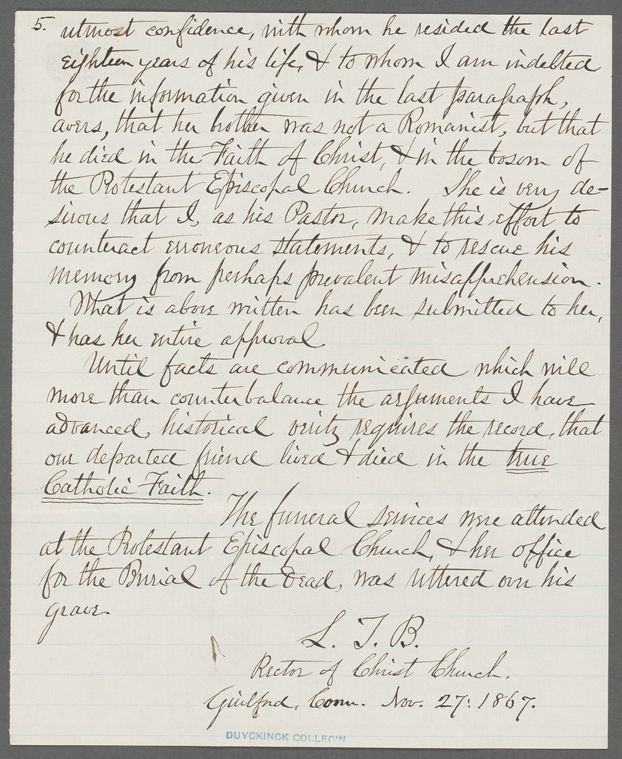 5. utmost confidence, with whom he resided the last
eighteen years of his life, & to whom I am indebted
for the information given in the last paragraph,
avers, that her brother was not a Romanist, but that
he died in the Faith of Christ, & in the bosom of
the Protestant Episcopal Church. She is very de-
sirous that I, as his Pastor, make this effort to
counteract erroneous statements, & to rescue his
memory from perhaps prevalent misapprehension.
What is above written has been submitted to her,
& has her entire approval.
Until facts are communicated which will
more than counterbalance the arguments I have
advanced, historical verity requires the record, that
our departed friend lived & died in the true
Catholic Faith.
The funeral services were attended
at the Protestant Episcopal Church, & her office
for the Burial of the Dead, was uttered over his
grave.
L. T. B.
Rector of Christ Church.
Guilford, Conn. Nov. 27: 1867.
DUYCKINCK COLLEC'N